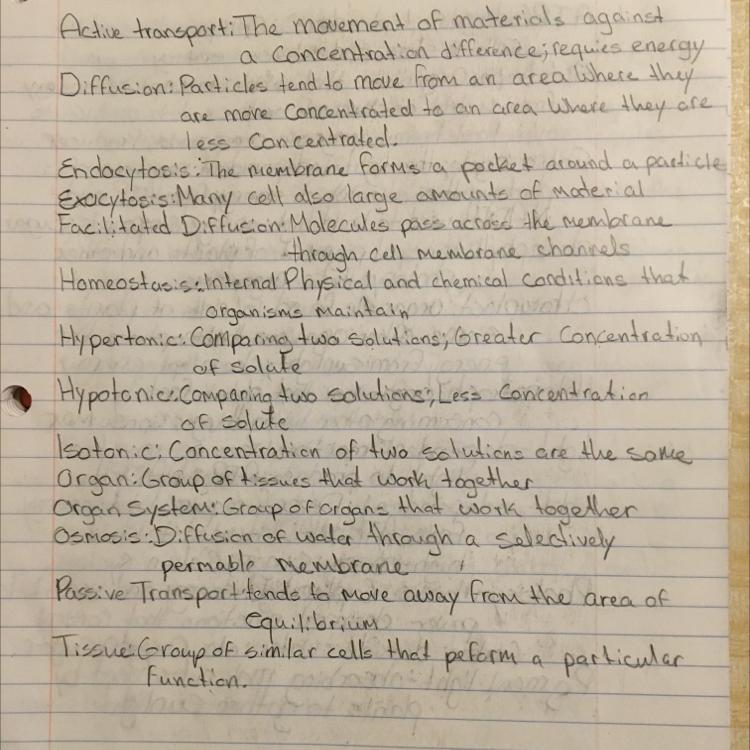 Active transport: The movement of materials against
a concentration difference; requies energy
Diffusion: Particles tend to move from an area where they
are more concentrated to an area where they are
less concentrated.
Endocytosis: The membrane forms a pocket around a particle
Exocytosis: Many cell also large amounts of material
Facilitated Diffusion: Molecules pass across the membrane
through cell membrane channels
Homeostasis: Internal Physical and chemical conditions that
organisms maintain
Hypertonic: Comparing two solutions; Greater concentration
of solute
Hypotonic: Comparing two solutions; Less concentration
of solute
Isotonic: Concentration of two solutions are the same
Organ: Group of tissues that work together
Organ System: Group of organs that work together
Osmosis: Diffusion of water through a selectively
permable membrane
Passive Transport tends to move away from the area of
equilibrium
Tissue: Group of similar cells that peform a particular
function.